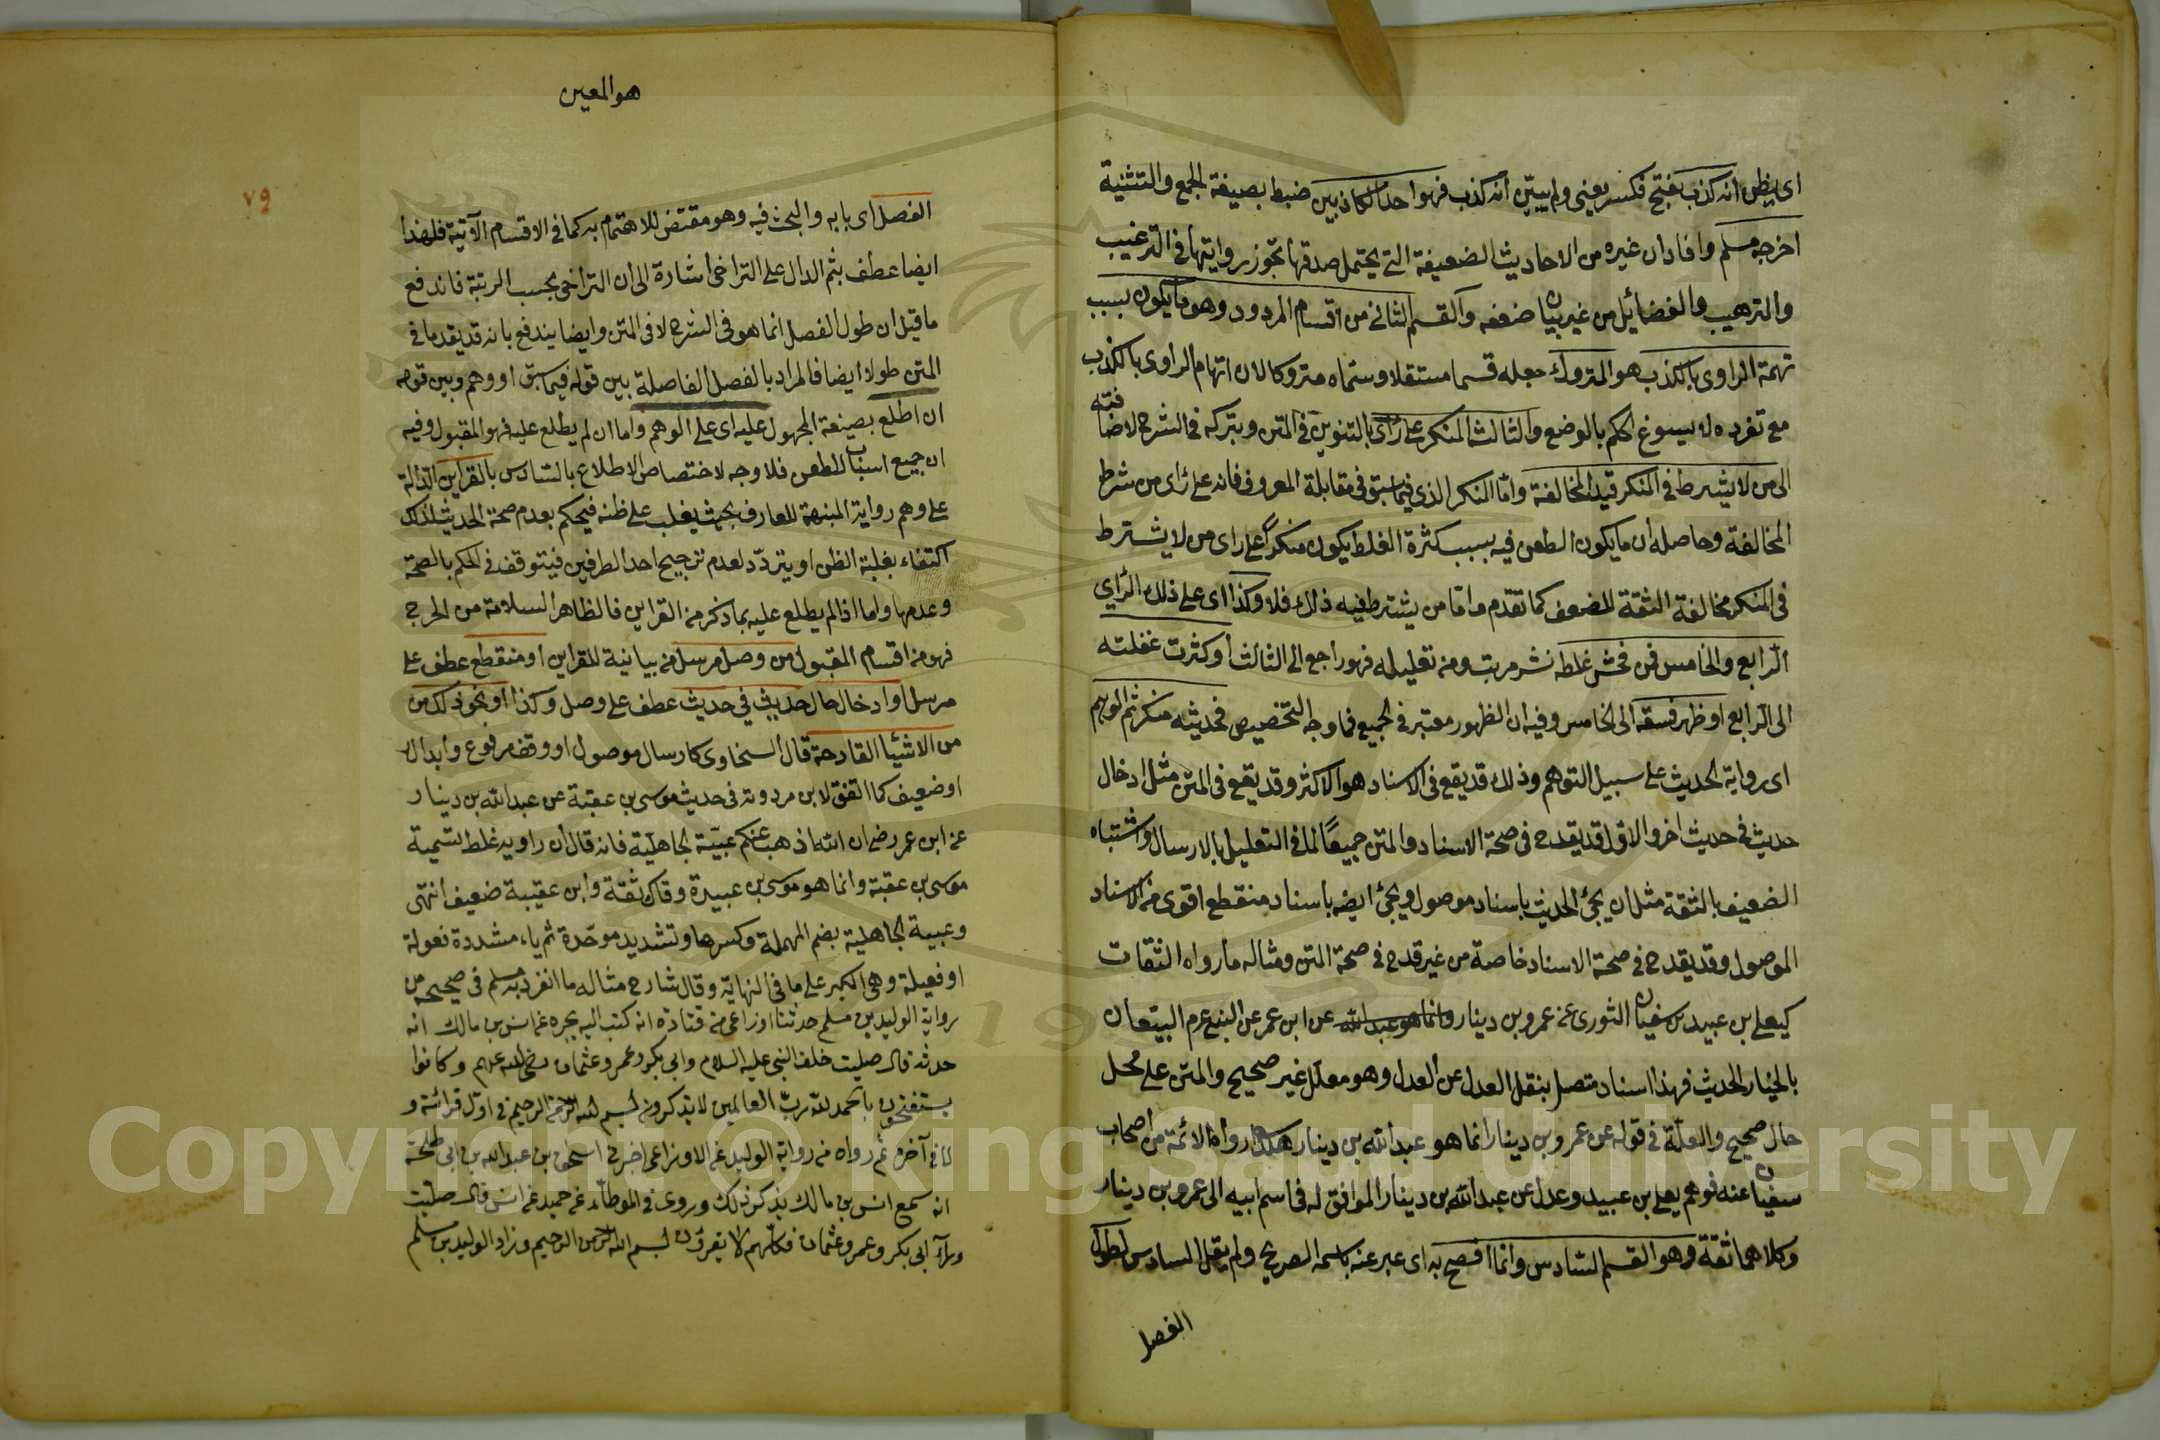 اى يظن أنه كذب بفتح فكسر يعنى ولم يبيّن أنه كذب فهو احد الكاذبين ضبط بصيغة الجمع والتثنية
اخرجه مسلم وافاد ان غيره من الاحاديث الضعيفة التى يحتمل صدقها تجوز روايتها فى الترغيب
والترهيب والفضائل من غير بيان ضعفه والقسم الثانى من اقسام المردود وهو ما يكون بسبب
تهمة الراوى بالكذب هو المتروك جعله قسما مستقلا وسماه متروكا لان اتهام الراوى بالكذب
مع تفرده لا يسوغ الحكم بالوضع والثالث المنكر على راى بالتنوين فى المتن وبتركه فى الشرح لاضافته
الى من لا يشترط فى المنكر قيد المخالفة واما المنكر الذى فيما سبق فى مقابلة المعروف فانه على راى من شرط
المخالفة وحاصله أن ما يكون الطعن فيه بسبب كثرة الغلط يكون منكرًا على راى من لا يشترط
فى المنكر مخالفة الثقة للضعف كما تقدم واما من يشترط فيه ذلك فلا وكذا اى على ذلك الرأي
الرابع والخامس فمن فحش غلطه نشر مرتب ومنه تعليله فهو راجع الى الثالث أو كثرت غفلته
الى الرابع او ظهر فسقه الى الخامس وفيه ان الظهور معتبر فى الجميع فما وجه التخصيص فحديثه منكر ثم الوهم
اى رواية الحديث على سبيل التوهم وذلك قد يقع فى الاسناد هو الاكثر وقد يقع فى المتن مثل ادخال
حديث فى حديث اخر والاول قد يقدح فى صحة الاسناد والمتن جميعًا لما فى التعليل بالارسال واشتباه
الضعيف بالثقة مثل ان يجئ الحديث باسناد موصول ويجئ ايضه باسناد منقطع اقوى من الاسناد
الموصول وقد يقدح فى صحة الاسناد خاصة من غير قدح فى صحة المتن ومثاله ما رواه الثقات
كيعلى بن عبيد عن سفيان الثورى عن عمرو بن دينار وانما هو عبد الله عن ابن عمر عن النبى عم البيعان
بالخيار الحديث فهذا اسناد متصل بنقل العدل عن العدل وهو معلل غير صحيح والمتن على محل
حال صحيح والعلّة فى قوله عن عمرو بن دينار انما هو عبد الله بن دينار هكذا رواه الائمة من اصحاب
سفيان عنه فوهم يعلى بن عبيد وعدل عن عبد الله بن دينار الموافق له فى اسم ابيه الى عمرو بن دينار
وكلاهما ثقة وهو القسم السادس وانما افصح به اى عبر عنه باسمه الصريح ولم يقل السادس لطول
الفصل
هو المعين
٧٩
الفصل اى بابه والبحث فيه وهو مقتض للاهتمام به كما فى الاقسام الآتية فلهذا
ايضا عطف بثم الدال على التراخى اشارة الى ان التراخى بحسب الرتبة فاندفع
ما قيل ان طول الفصل انما هو فى الشرح لا فى المتن وايضا يندفع بانه قد يقدما فى
المتن طولا ايضا فالمراد بالفصل الفاصلة بين قوله فيما سبق او وهم وبين قوله
ان اطلع بصيغة المجهول عليه اى على الوهم واما ان لم يطلع عليه فهو المقبول وفيه
ان جميع اسباب الطعن فلا وجه لاختصاص الاطلاع بالسادس بالقراين الدالة
على وهم رواية المنبهة للعارف بحيث يغلب على ظنه فيحكم بعدم صحة الحديث لذلك
اكتفاء بغلبة الظن او يتردّد لعدم ترجيح احد الطرفين فيتوقف فى الحكم بالصحة
وعدمها واما اذا لم يطلع عليه بما ذكر من القراين فالظاهر السلامة من الحرج
فهو من اقسام المقبول من وصل مرسل من بيانية للقراين او منقطع عطف على
مرسل او ادخال حال حديث في حديث عطف على وصل وكذا او نحو ذلك من
من الاشيا القادحة قال السخاوى كارسال موصول او وقف مرفوع وابدال
او ضعيف كما اتفق لابن مردويه فى حديث موسى بن عقبة عن عبد الله بن دينار
عن ابن عمر رضى ان الله اذهب عنكم عبيّة الجاهلية فانه قال أن راويه غلط لتسمية
موسى بن عقبة وانما هو موسى بن عبيدة وقاك ثقة وابن عقيبة ضعيف انتهى
وعبية الجاهلية بضم المهملة وكسرها وتشديد موحّدة ثم ياء مشددة فعولة
او فعيلة وهى الكبر على ما فى النهاية وقال شارح مثاله ما انفرد به مسلم فى صحيحه من
رواية الوليد بن مسلم حدثنا اوزاعى عن قتادة انه كتب اليه يخبره عن انس بن مالك انه
حدثه قال صليت خلف النبى عليه السلام وابى بكر وعمر وعثمان رضى الله عنهم وكانوا
يستفتحون بالحمد لله ربّ العالمين لا يذكرون بسم الله الرحمن الرحيم فى اوّل قرائة و
لا فى آخره ثم رواه من رواية الوليد عن الاوزاعى اخبرنى اسحق بن عبد الله بن ابى طلحة
انه سمع انس بن مالك يذكر ذلك وروى فى الموطأ عن حميد عن انس قال صليت
وراء ابى بكر وعمر وعثمان فكلهم لا يقرؤن بسم الله الرحمن الرحيم وزاد الوليد بن مسلم
Copyright © King Saud University